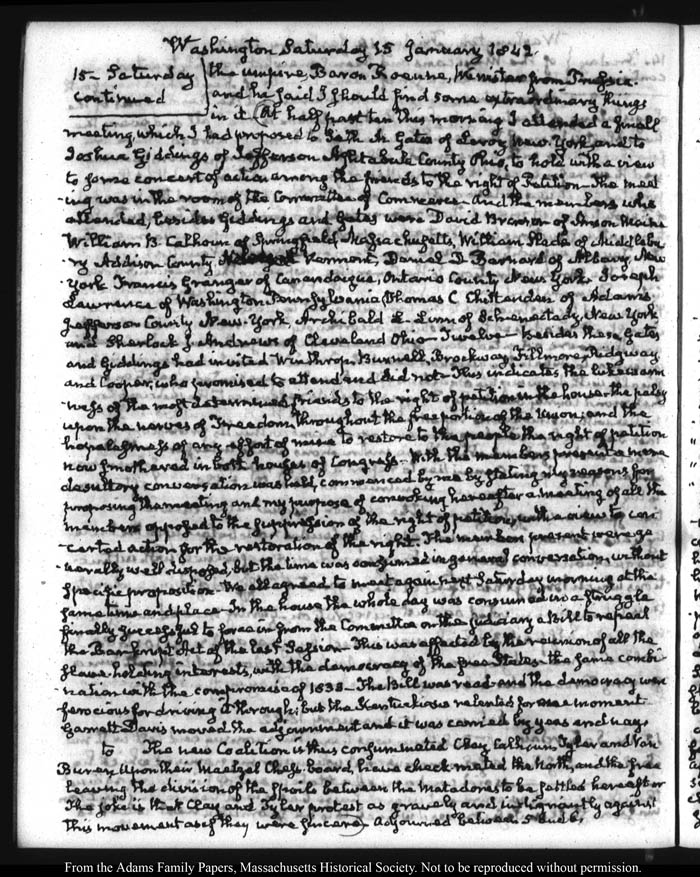 Washington Saturday 15 January 1842.
15- Saturday
continued
the umpire, Baron Roenne, Minister from Prussia.
and he said I should find some extraordinary things
in it. At half past ten this morning I attended a small
meeting, which I had proposed to Seth M. Gates of Leroy New York, and to
Joshua Giddings of Jefferson Ashtabula County Ohio, to hold with a view
to some concert of action among the friends to the right of Petition- The meet
-ing was in the room of the Committee of Commerce- And the members who
attended, besides Giddings and Gates were David Bronson of Anson Maine
William B Calhoun of Springfield Massachusetts, William Slade of Middlebu
-ry Addison County Vermont, Daniel D Barnard of Albany New
York Francis Granger of Canandaigua, Ontario County New York- Joseph
Lawrence of Washington Pennsylvania, Thomas C Chittenden of Adams
Jefferson County New-York, Archibald L Linn of Schenectady, New York
and Sherlock J Andrews of Cleveland Ohio- Twelve- Besides these Gates
and Giddings had invited Winthrop, Burnell, Brockway, Fillmore, Ridgway
and Cooper, who promised to attend and did not- This indicates the lukewarm
-ness of the most determined friends to the right of petition in the house- the palsy
upon the nerves of Freedom, throughout the free portion of the Union; and the
hopelessness of any effort of mine to restore to the people the right of petition
now smothered in both houses of Congress- With the members present a mere
desultory conversation was held, commenced by me by stating my reasons for
proposing the meeting and my purpose of convoking hereafter a meeting of all the
members opposed to the suppression of the right of petition, with a view to con
-certed action for the restoration of the right. The members present were ge
-nerally well disposed, but the time was consumed in general conversation, without
specific proposition- We all agreed to meet again next Saturday morning at the
same time and place- In the house the whole day was consumed in a struggle
finally successful to force in from the Committee on the Judiciary a Bill to repeal
the Bankrupt Act of the last Session- This was effected by the reunion of all the
slave-holding interests, with the democracy of the free States- the same combi
-nation with the compromise of 1833- The Bill was read and the democracy were
ferocious for driving it through; but the Kentuckians relented for one moment
Garrett Davis moved the adjournment and it was carried by yeas and nays
to The new Coalition is thus consummated Clay, Calhoun, Tyler and Van
Buren, upon their Maelzel Chess-board, have check mated the North, and the free
leaving the division of the Spoils between the Matadores to be settled hereafter
The joke is that Clay and Tyler protest as gravely and indignantly against
this movement as if they were sincere- Adjourned between 5 and 6.
From the Adams Family Papers, Massachusetts Historical Society. Not to be reproduced without permission.